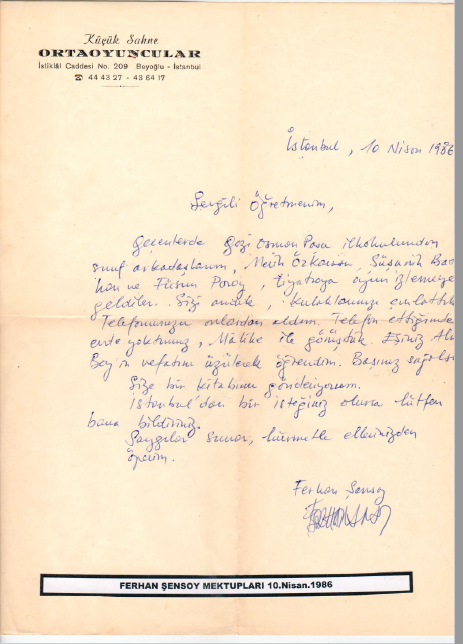 Küçük Sahne
ORTAOYUNCULAR
İstiklâl Caddesi No. 209 Beyoğlu - İstanbul
☎ 44 43 27 - 43 64 17
İstanbul, 10 Nisan 1986
Sevgili Öğretmenim,
Geçenlerde Gazi Osman Paşa ilkokulundan
sınıf arkadaşlarım, Melih Özkaran,
ve Füsun, tiyatroya oyun izlemeye
geldiler. Sizi andık, kulaklarınızı çınlattık.
Telefonunuzu onlardan aldım. Telefon ettiğimde
evde yoktunuz, Mâlike ile görüştük. Eşiniz
Bey'in vefatını üzülerek öğrendim. Başınız sağolsun
Size bir kitabımı gönderiyorum.
İstanbul'dan bir isteğiniz olursa lütfen
bana bildiriniz.
Saygılar sunar, hürmetle ellerinizden
öperim.
Ferhan Şensoy
FERHAN ŞENSOY MEKTUPLARI 10.Nisan.1986